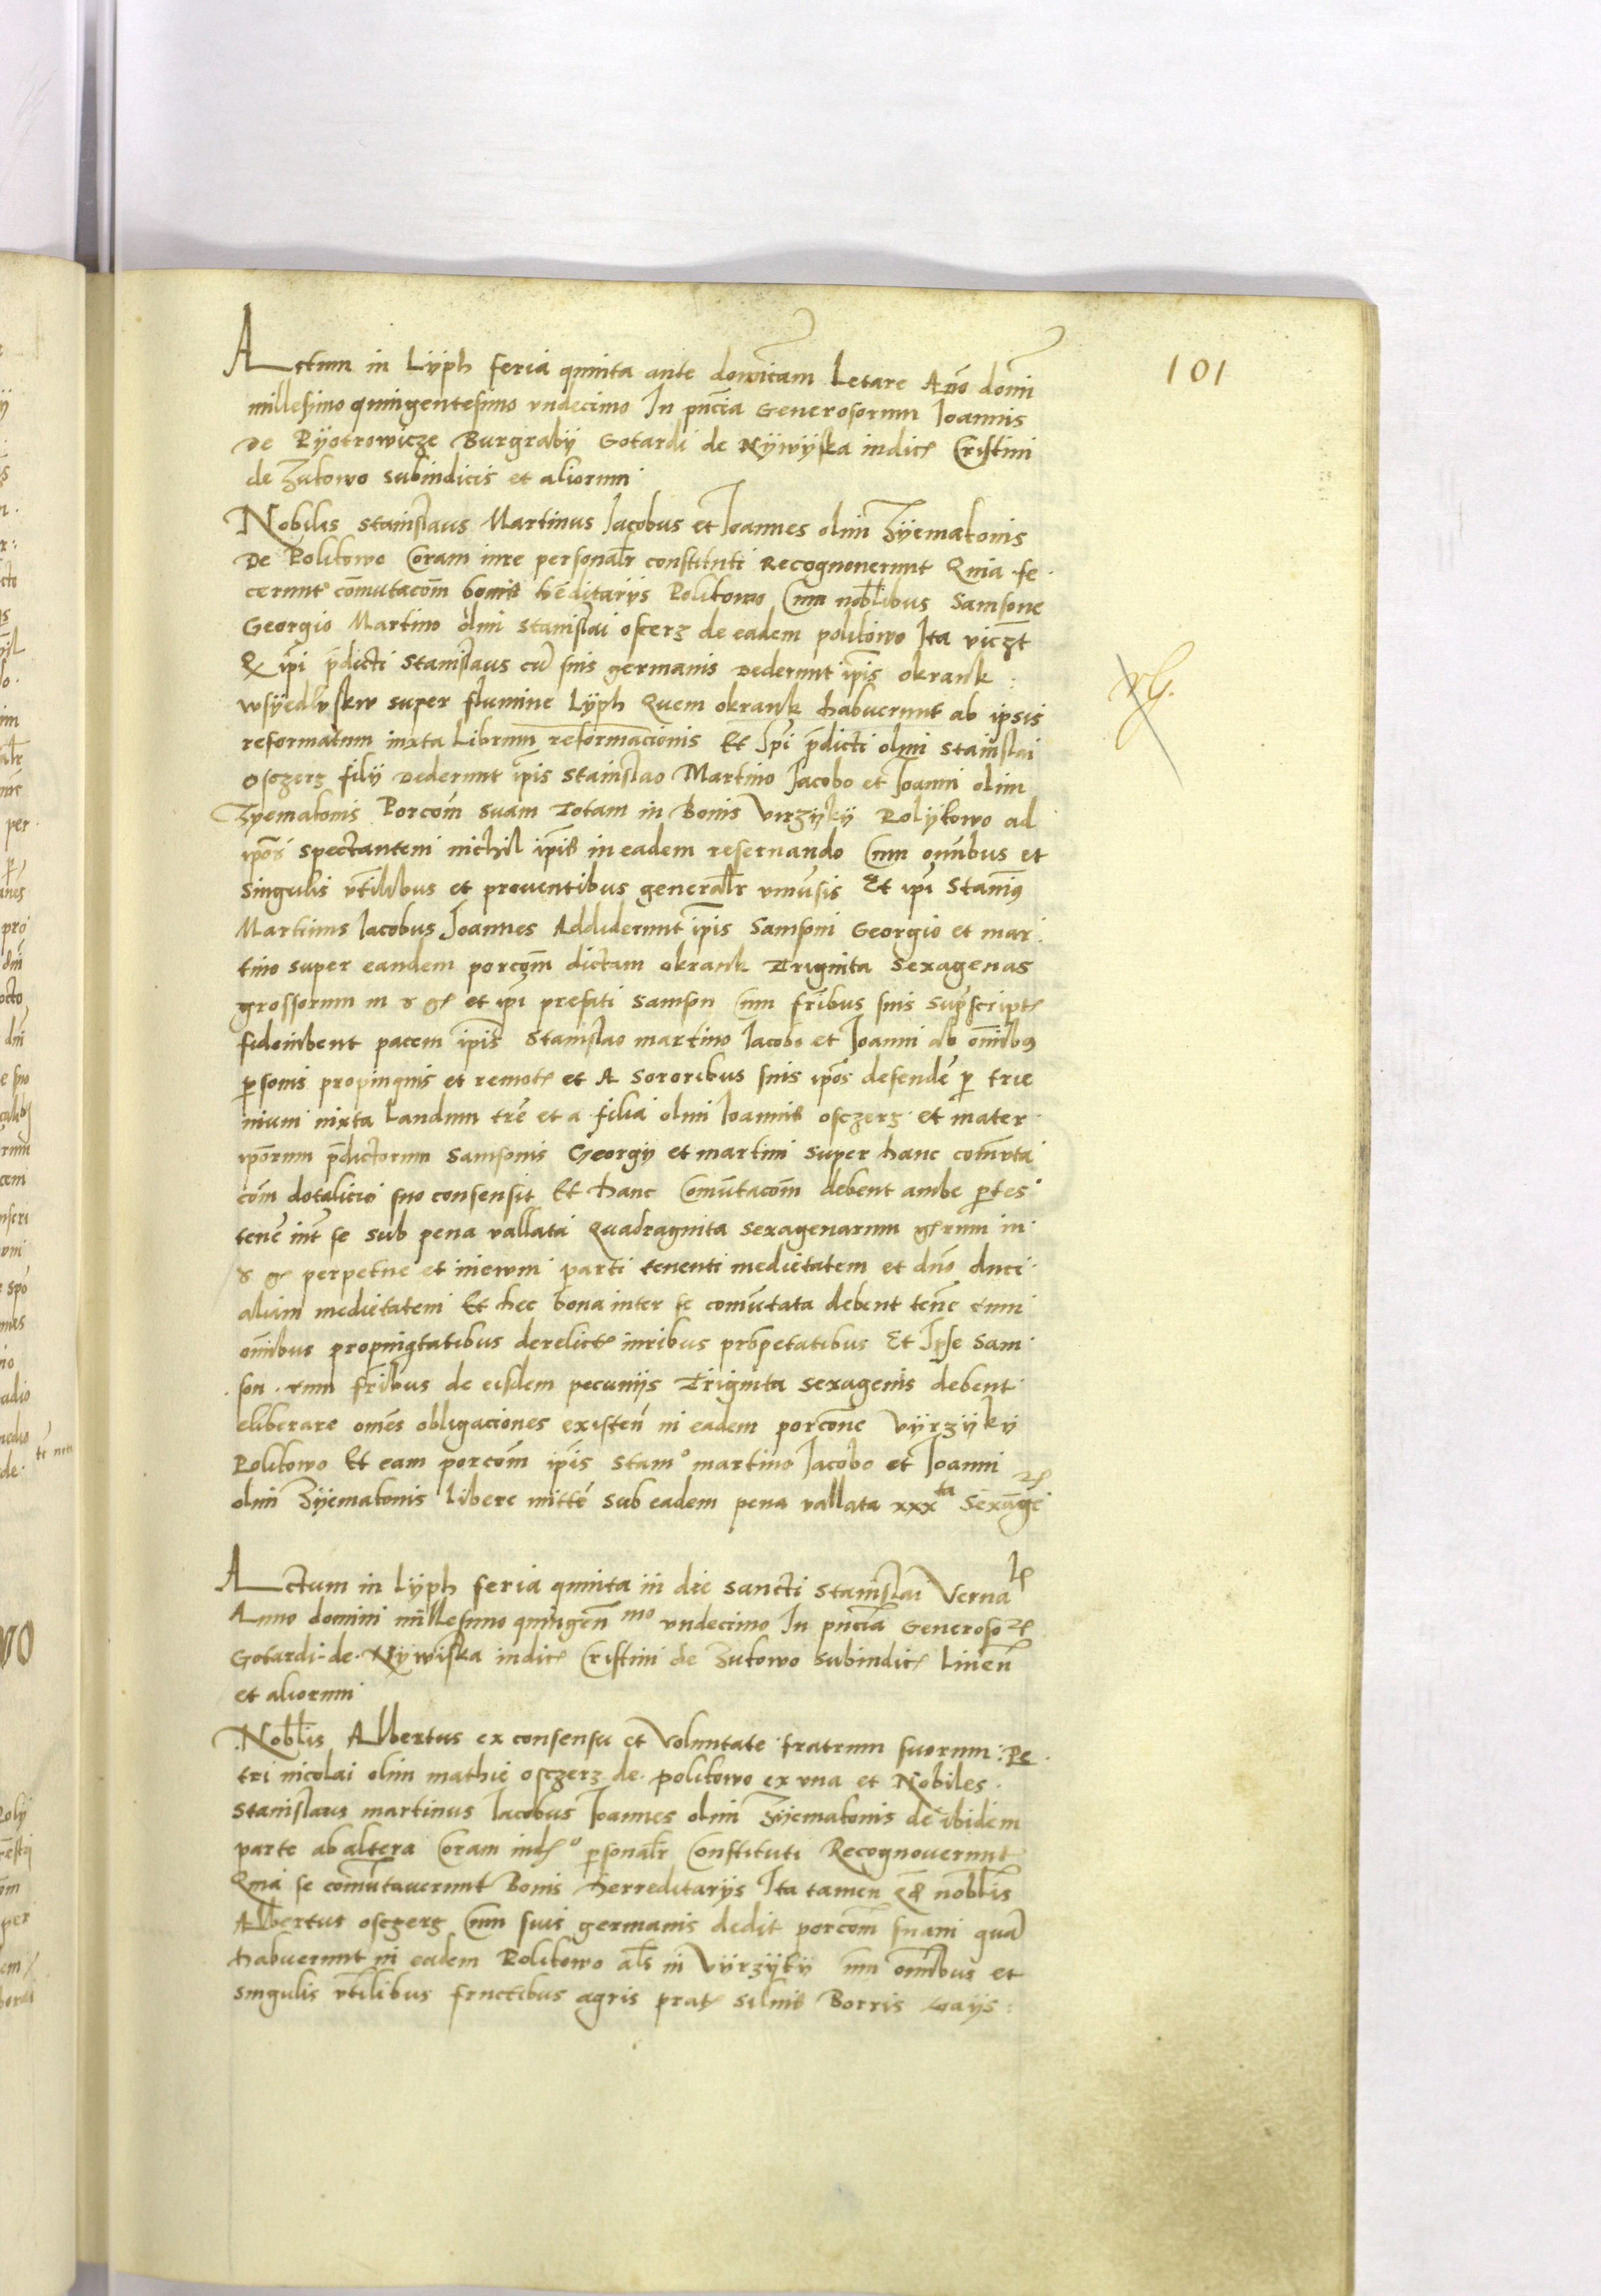 101
Actum in Lyph feria quinta ante dominicam Letare Anno domini
millesimo quingentesimo vndecimo In pñcia Generosorum Ioannis
De Pyotrowicze Burgrabij Gotardi de Nijwijska iudic Cristini
de Zukowo subiudicis et aliorum
Nobiles Stanislaus Martinus Iacobus et Ioannes olim Zyemakonis
De Polikowo Coram iure personalr constituti Recognouerunt Quia fe
cerunt cõmutacõm bonis hẽditarijs Polikowo Cum noblibus Sampsone
Georgio Martino olim Stanislai oscerz de eadem polikowo Ita viczt
Q ipi pdicti Stanislaus cũ suis germanis Dederunt ipis okrank
wsyedlvskw super flumine Lyph Quem okrank habuerunt ab ipsis
reformatum iuxta Librum reformacionis Et Ipi pdicti olim Stanislai
Osczerz filij Dederunt ipis Stanislao Martino Iacobo et Ioanni olim
Zyemakonis Porcõm suam Totam in Bonis Virzijky Polykowo ad
ipos spectantem nichil ipis in eadem reseruando Cum omibus et
Singulis vtilibus et prouentibus generalr vniusis Et ipi Stanis9
Martinus Iacobus Ioannes Addiderunt ipis Samsoni Georgio et mar
tino super eandem porcõm dictam okrank Triginta Sexagenas
grossorum in et ipi prefati Samson Cum fribus suis supscript
fideiubent pacem ipis Stanislao martino Iacobo et Ioanni ab omib9
psonis propinquis et remot et A Sororibus suis ipos defende p trie
nium iuxta Laudum tre et a filia olim Ioannis osczerz et mater
iporum pdictorum Samsonis Georgij et martini super hanc comuta
com dotalicio suo consensit Et hanc Comutacom debent ambe ptes
tene int se sub pena vallata Quadraginta sexagenarum grrum in
perpetue et inewm parti tenenti medietatem et dno duci
aliam medietatem Et hec bona inter se comutata debent tene cum
omibus propinqtatibus derelict iuribus prprietatibus Et Ipse Sam
son cum fribus de eisdem pecunijs Triginta sexagenis debent
eliberare omes obligaciones existen in eadem porcone Vyrzyky
Polikowo Et eam porcom ipis Stano martino Iacobo et Ioanni
olim Zijemakonis libere mitte sub eadem pena vallata xxxta Sexage
Actum in lijph feria quinta in die sancti Stanislai Vernal
Anno domini millesimo quingen mo vndecimo In pñcia Generoso
Gotardi de Nywiska iudic Cristini de Zukowo subiudic Linen
et aliorum
Noblis Albertus ex consensu et Voluntate fratrum suorum Pe
tri nicolai olim mathie osczerz de polikowo ex vna et Nobiles
Stanislaus martinus Iacobus Ioannes olim Zijemakonis de ibidem
parte ab altera Coram iudo psonalr Constituti Recognouerunt
Quia se comutauerunt Bonis herreditarijs Ita tamen qd noblis
Albertus osczerz Cum suis germanis dedit porcom suam qua
habuerunt in eadem Polikowo als in Vyrzyky cum omibus et
singulis vtilibus fructibus agris prat siluis Borris Gaijs